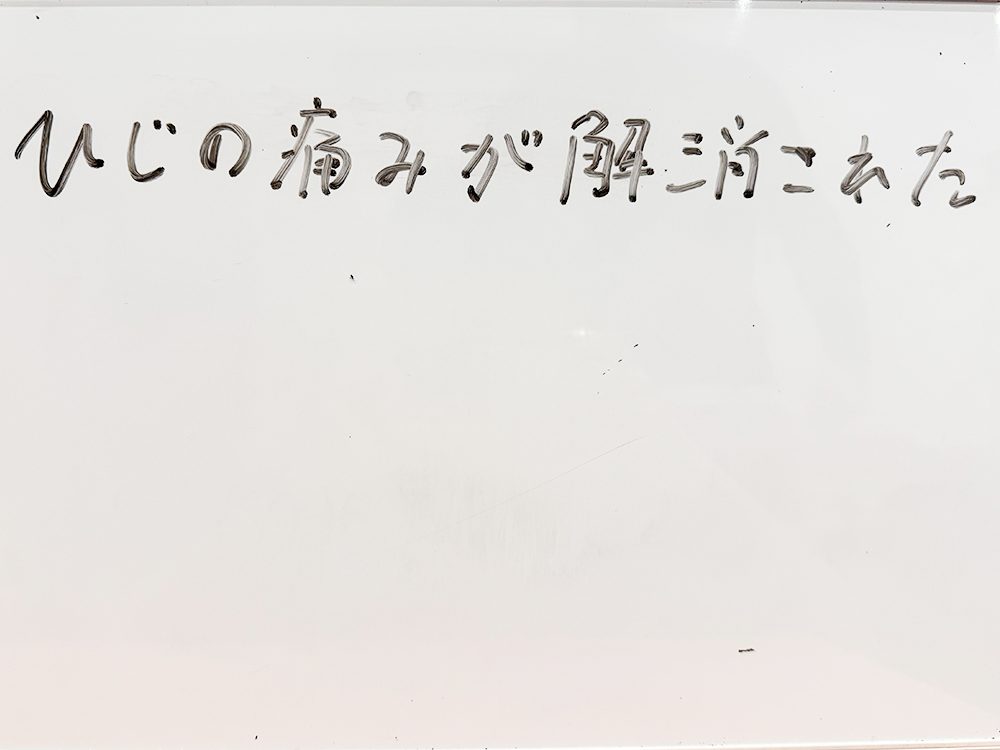 ひじの痛みが解消された